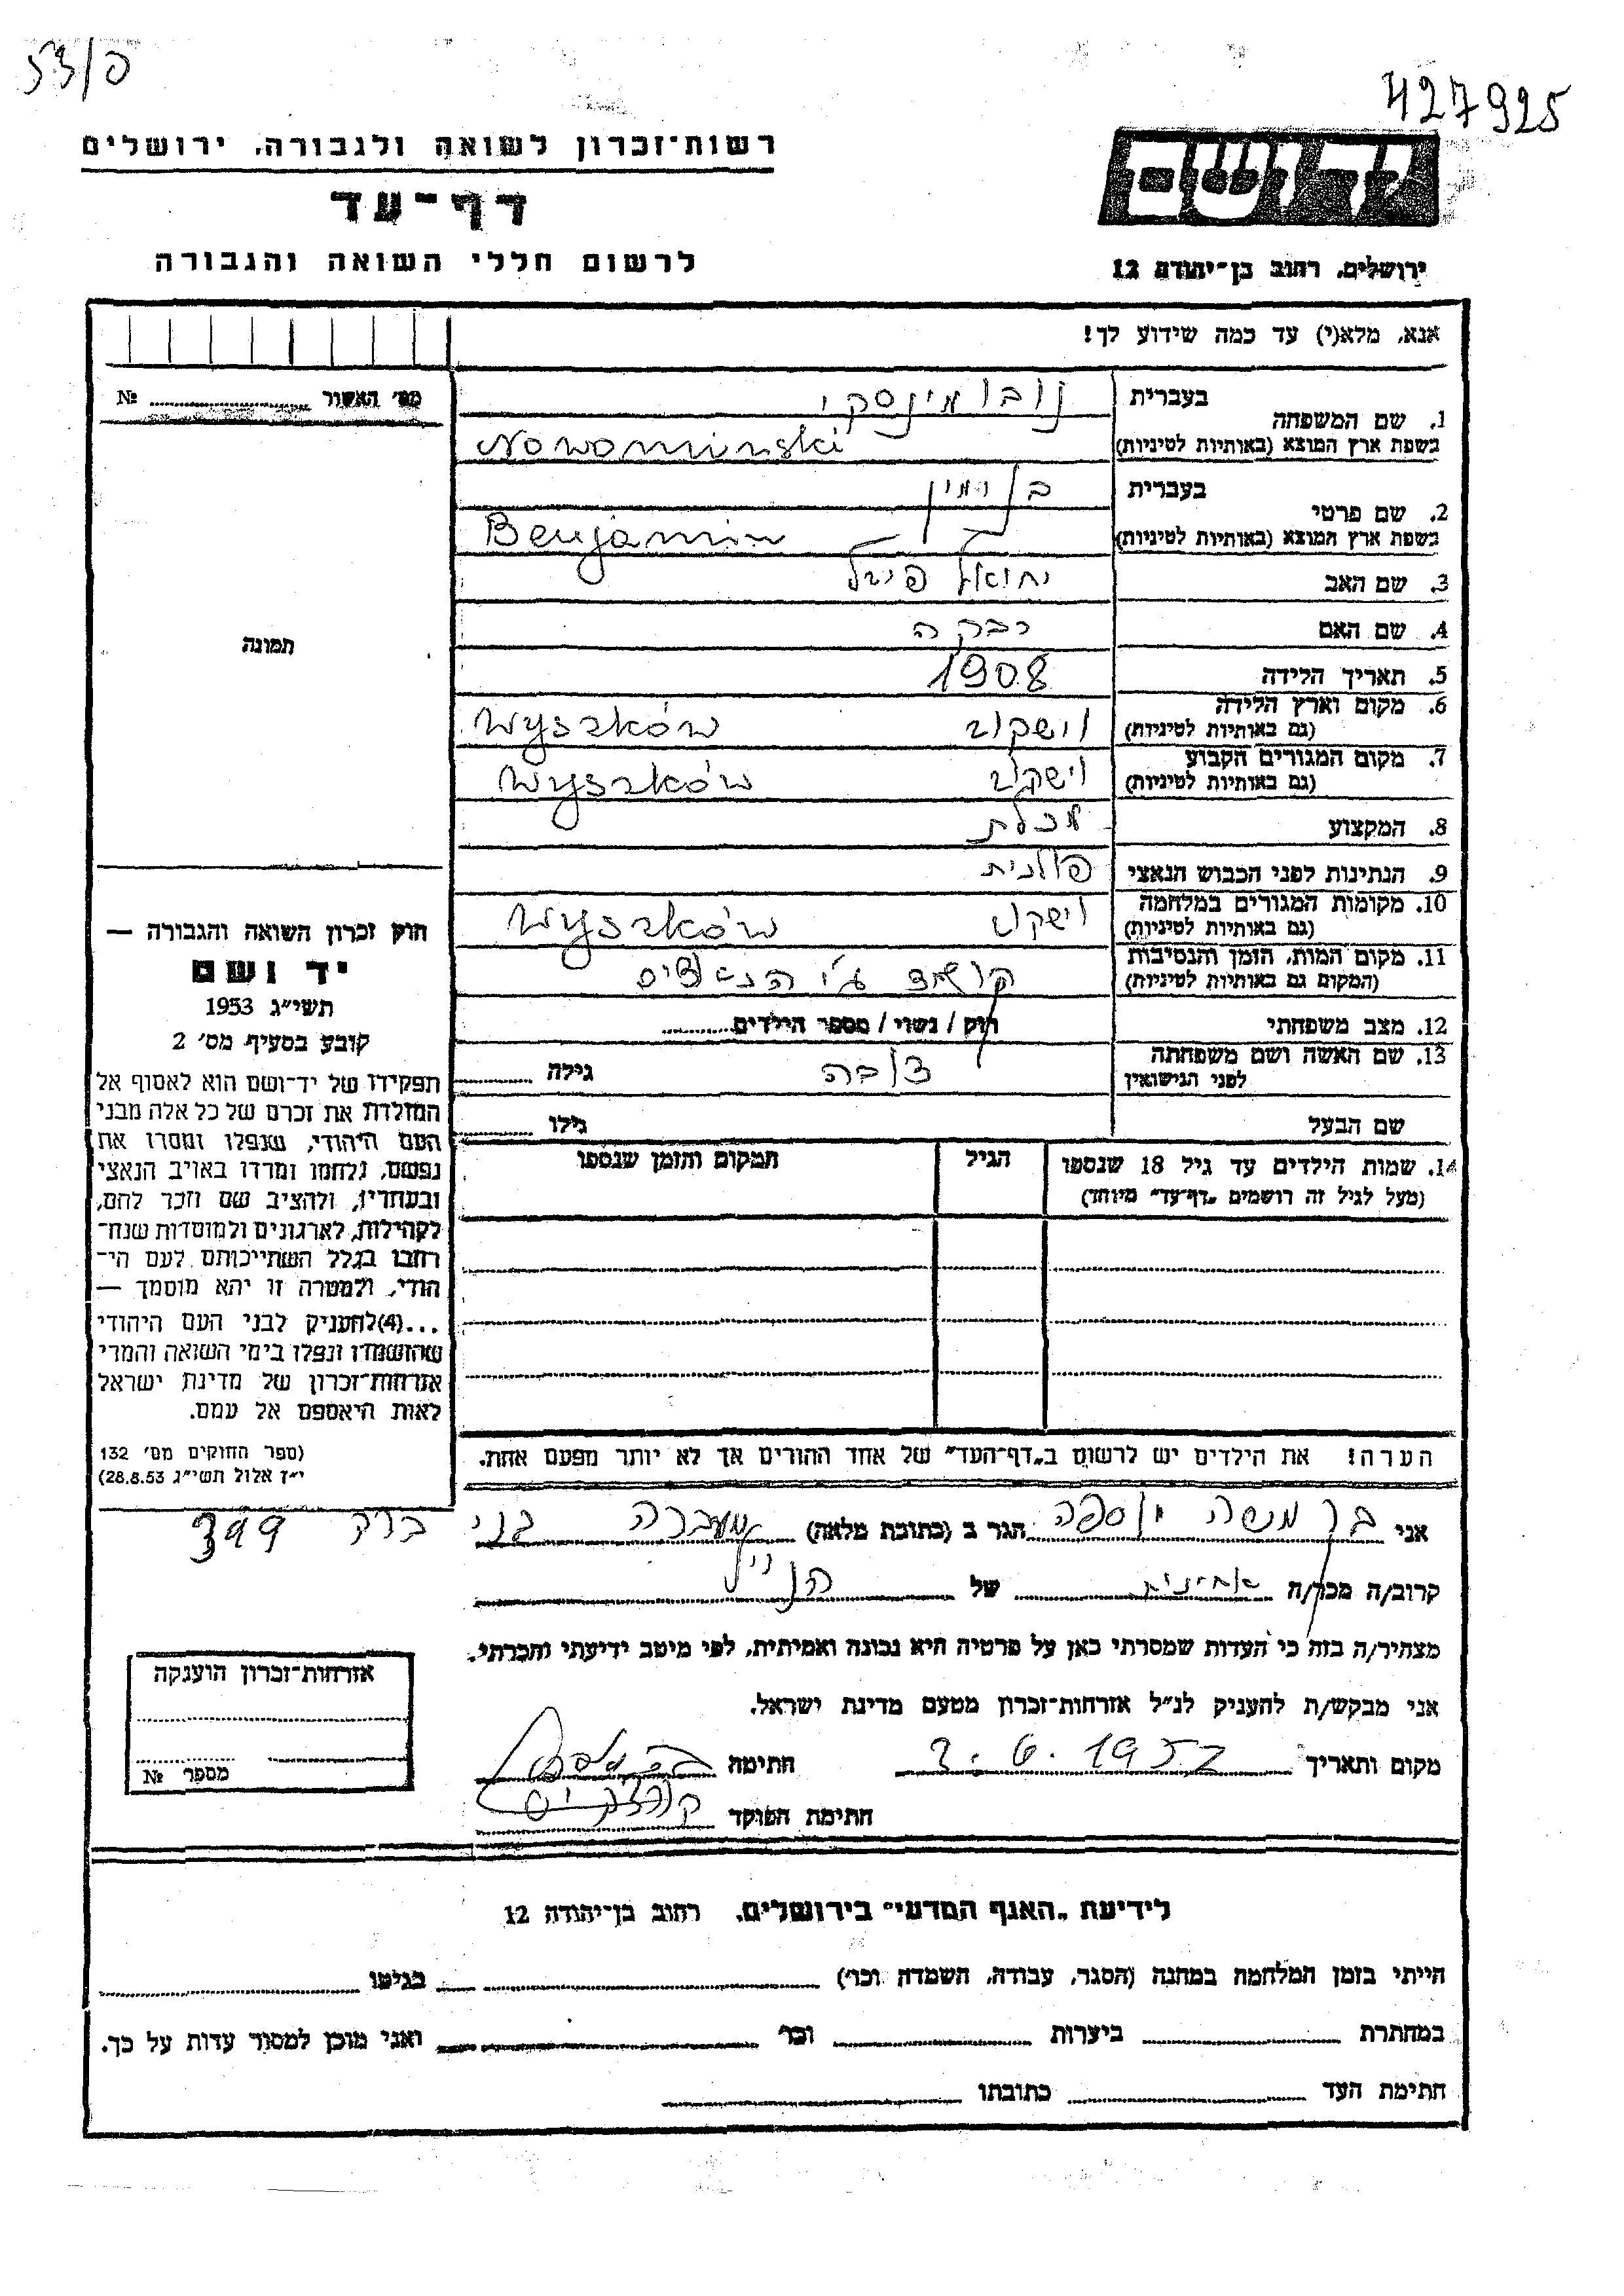 53/פ
427925
רשות־זכרון לשואה ולגבורה, ירושלים
דף־עד
לרשום חללי השואה והגבורה
יד ושם
ירושלים, רחוב בן־יהודה 12
אנא, מלא(י) עד כמה שידוע לך!
מס׳ האשור № ..........
1. שם המשפחה
בעברית נובומינסקי
בשפת ארץ המוצא (באותיות לטיניות) Nowominski
2. שם פרטי
בעברית בנימין
בשפת ארץ המוצא (באותיות לטיניות) Benjamin
3. שם האב יחואל פישל
4. שם האם רבקה
5. תאריך הלידה 1908
6. מקום וארץ הלידה
(גם באותיות לטיניות) וישקוב Wyszków
7. מקום המגורים הקבוע
(גם באותיות לטיניות) וישקוב Wyszków
8. המקצוע
9. הנתינות לפני הכבוש הנאצי פולנית
10. מקומות המגורים במלחמה
(גם באותיות לטיניות) וישקוב Wyszków
11. מקום המות, הזמן והנסיבות
(המקום גם באותיות לטיניות) ע״י הנאצים
12. מצב משפחתי רוק / נשוי / מספר הילדים..........
13. שם האשה ושם משפחתה
לפני הנישואין גילה ..........
שם הבעל גילו ..........
14. שמות הילדים עד גיל 18 שנספו
(מעל לגיל זה רושמים „דף־עד" מיוחד)
הגיל
המקום והזמן שנספו
תמונה
חוק זכרון השואה והגבורה —
יד ושם
תשי״ג 1953
קובע בסעיף מס׳ 2
תפקידו של יד־ושם הוא לאסוף אל
המולדת את זכרם של כל אלה מבני
העם היהודי, שנפלו ומסרו את
נפשם, נלחמו ומרדו באויב הנאצי
ובעוזריו, ולהציב שם וזכר להם,
לקהילות, לארגונים ולמוסדות שנח־
רבו בגלל השתייכותם לעם הי־
הודי, ולמטרה זו יהא מוסמך —
...(4)להעניק לבני העם היהודי
שהושמדו ונפלו בימי השואה והמרי
אזרחות־זכרון של מדינת ישראל
לאות היאספם אל עמם.
(ספר החוקים מס׳ 132
י״ז אלול תשי״ג 28.8.53)
הערה! את הילדים יש לרשום ב„דף־העד" של אחד ההורים אך לא יותר מפעם אחת.
אני בן מנשה יוספה הגר ב (כתובת מלאה) מעברה בני ברק 399
קרוב/ה מכר/ה אחינית של הנ״ל
מצהיר/ה בזה כי העדות שמסרתי כאן על פרטיה היא נכונה ואמיתית, לפי מיטב ידיעתי והכרתי.
אני מבקש/ת להעניק לנ״ל אזרחות־זכרון מטעם מדינת ישראל.
מקום ותאריך 2.6.1957 חתימה
חתימת הפוקד
אזרחות־זכרון הוענקה
מספר №
לידיעת „האגף המדעי" בירושלים, רחוב בן־יהודה 12
הייתי בזמן המלחמה במחנה (הסגר, עבודה, השמדה וכו׳) .......... בגיטו ..........
במחתרת .......... ביערות .......... וכו׳ .......... ואני מוכן למסור עדות על כך.
חתימת העד .......... כתובתו ..........